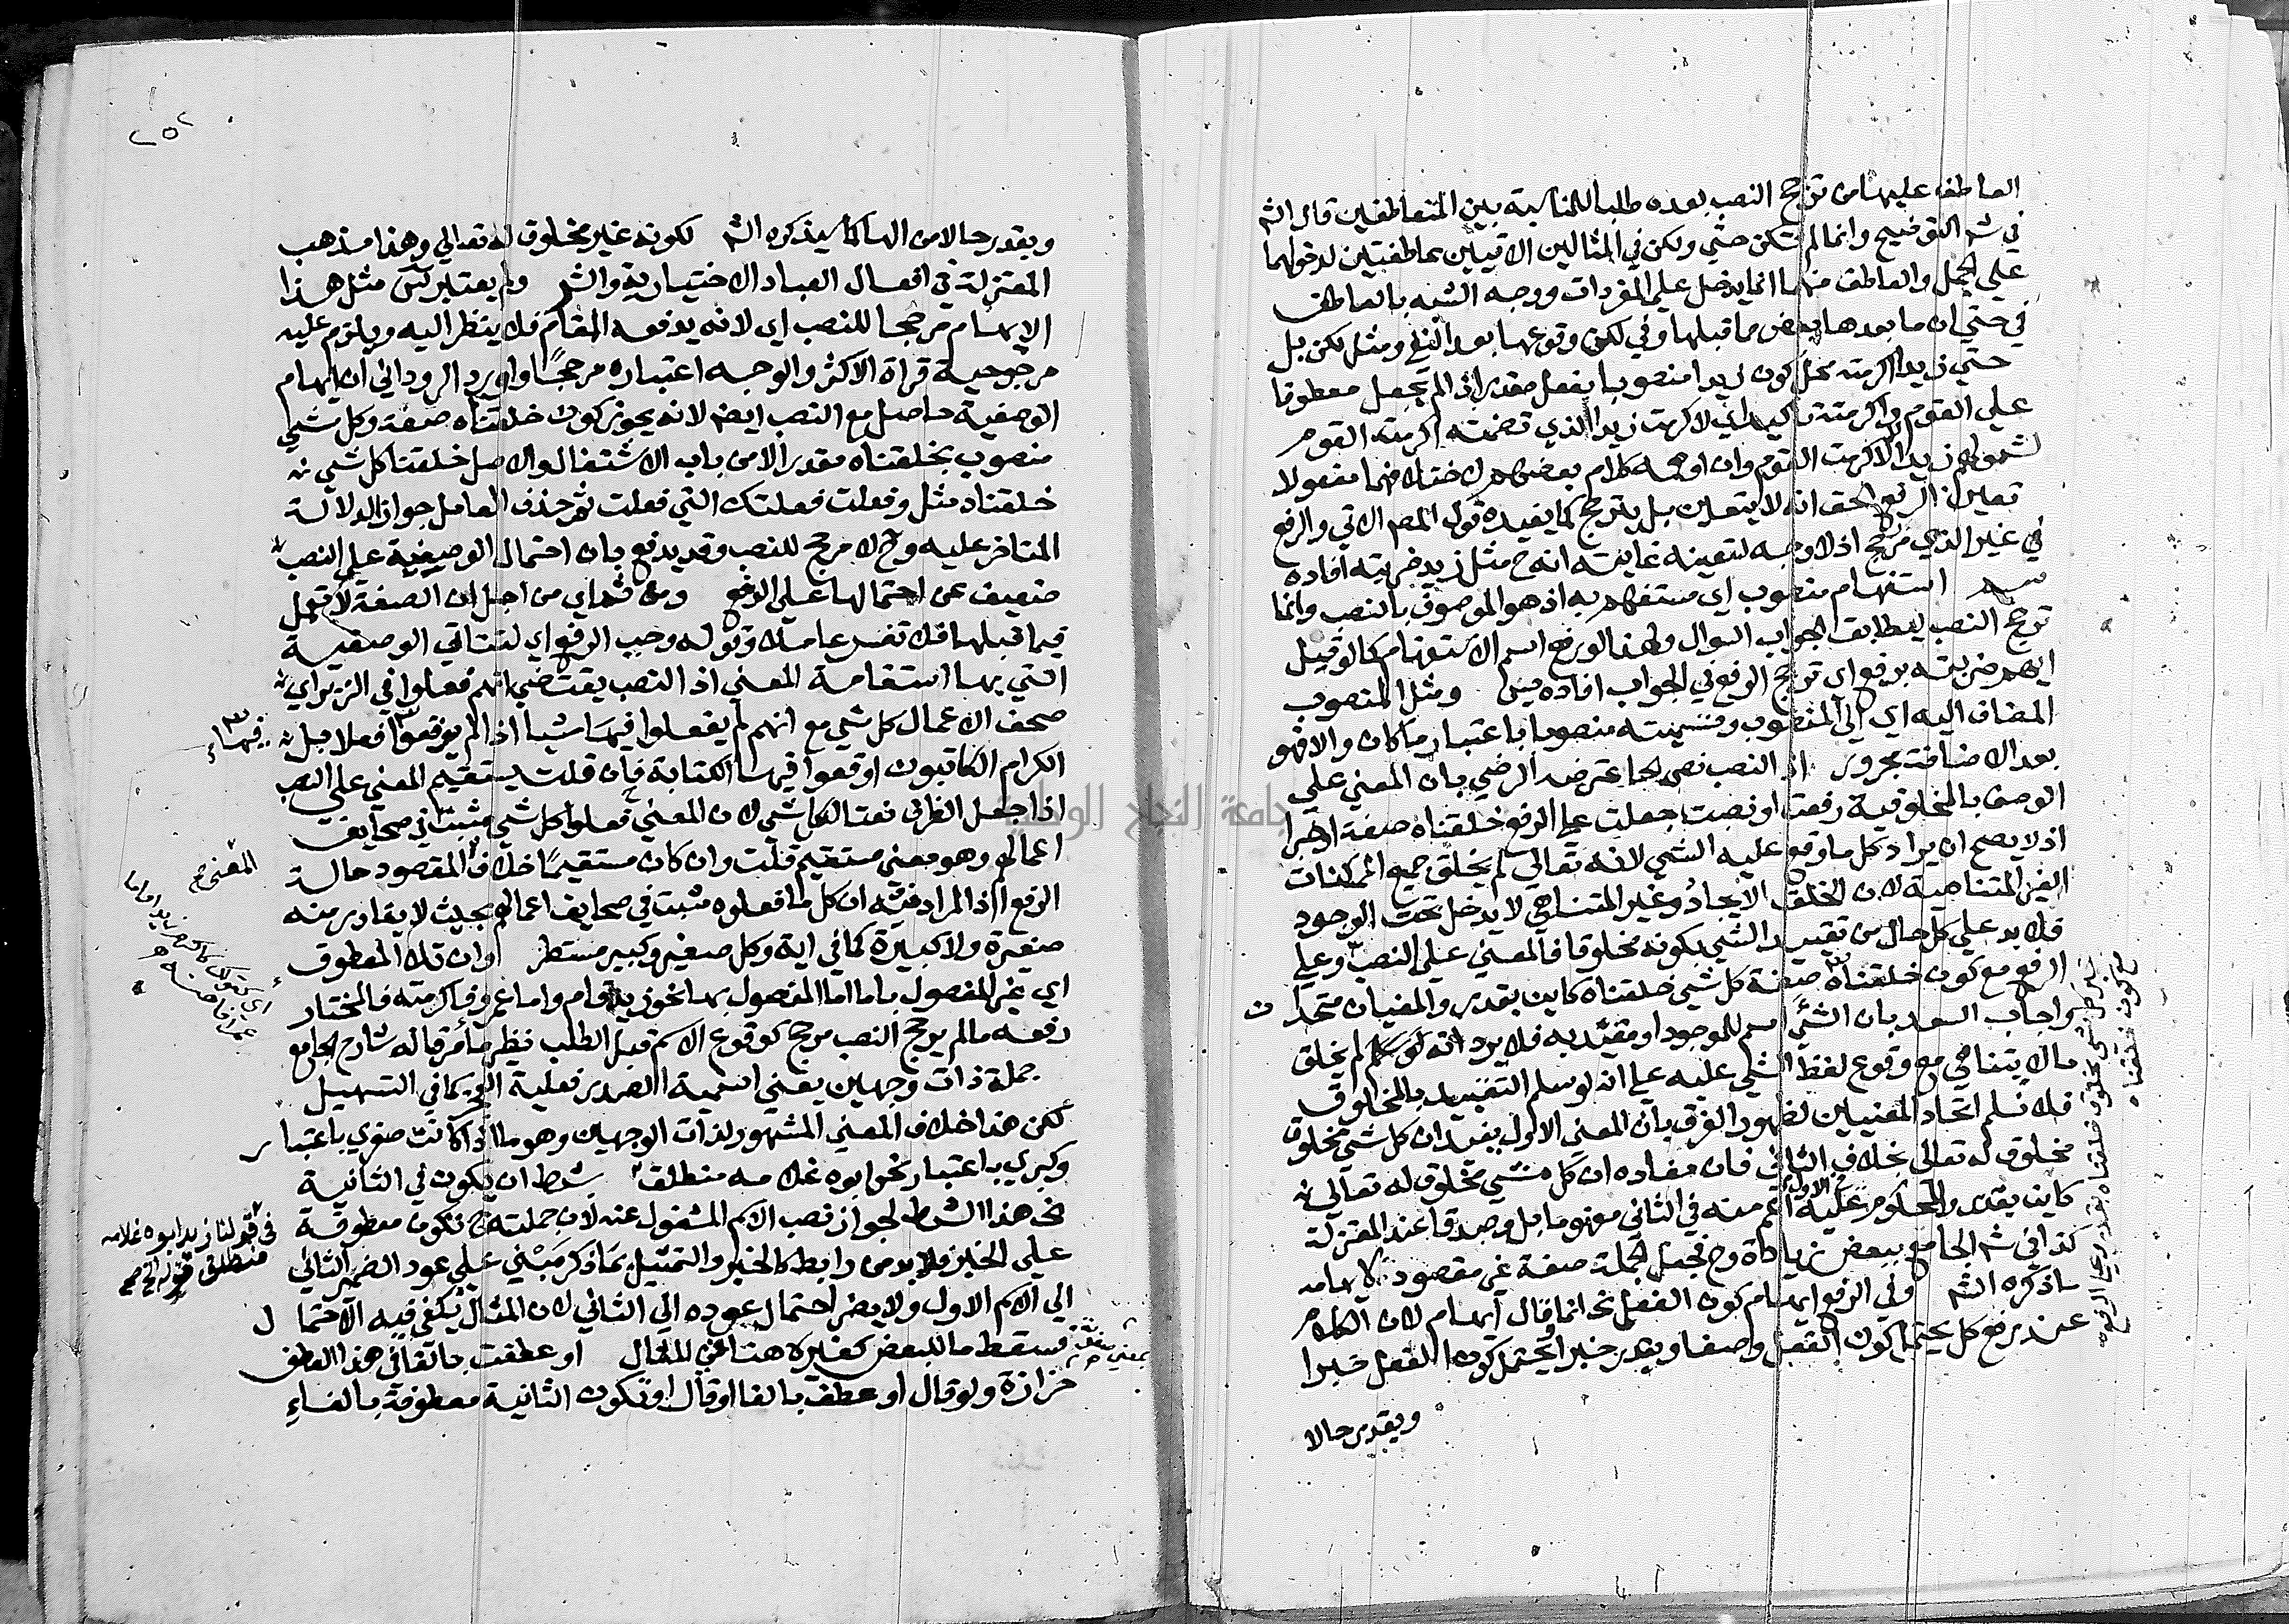 العاطف عليهما من ترجح النصب بعده طلبا للمناسبة بين المتعاطفين قال الشم
في شم التوضيح وانما لم تكن حتي ولكن في المثالين الاتيين عاطفتين لدخولهما
علي الجمل والعاطف منهما انما يدخل علي المفردات ووجه الشبه بالعاطف
في حتي ان ما بعدها بعض مما قبلها وفي لكن وقوعها بعد النفي ومثل لكن بل
حتي زيدا اكرمته محل كون زيدا منصوبا بفعل مقدر اذا لم يجعل معطوفا
علي القوم واكرمته تاكيدا اي لاكرمت زيدا الذي تضمنته اكرمت القوم
لشمولهم زيدا لاكرمت القوم وان اوهمه كلام بعضهم لاختلافهما مفعولا
تعين الرفع الحق انه لا يتعين بل يترجح كما يفيده قول المصم الاتي والرفع
في غير الذي مر رجح اذ لا وجه لتعينه غايته انه ح مثل زيد ضربته افاده
سم استفهام منصوب اي مستفهم به اذ هو الموصوف بالنصب وانما
ترجح النصب ليطابق الجواب السوال ولهذا لو رفع اسم الاستفهام كما لو قيل
ايهم ضربته برفع اي ترجح الرفع في الجواب افاده يس ومثل المنصوب
المضاف اليه اي الي المنصوب وتسميته منصوبا باعتبار ما كان والا فهو
بعد الاضافة مجرور اذ النصب نص الخ اعترضه الرضي بان المعني علي
الوصف بالمخلوقية رفعت او نصبت جعلت علي الرفع خلقناه صفة او خبرا
اذ لا يصح ان يراد كل ما وقع عليه الشي لانه تعالي لم يخلق جميع الممكنات
الغير المتناهية لان الخلق الايجاد وغير المتناهي لا يدخل تحت الوجود
فلا بد علي كل حال من تقييد الشي بكونه مخلوقا فالمعني علي النصب وعلي
الرفع مع كون خلقناه صفة كل شي خلقناه كاين بقدر والمعنيان متحدان
واجاب السعد بان الشي اسم للموجود او مقيد به فلا يرد انه تعالي لم يخلق
ما لا يتناهي مع وقوع لفظ الشي عليه علي انه لو سلم التقييد بالمخلوق
فلا نسلم اتحاد المعنيين لظهور الفرق بان المعني الاول يفيد ان كل شي مخلوق
مخلوق له تعالي بخلاف الثاني فان مفاده ان كل شي مخلوق له تعالي
كاين بقدر والمحكوم عليه الاول اعم منه في الثاني مفهوما بل وصدقا عند المعتزلة
كذا في شم الجامع ببعض زيادة وح فجعل الجملة صفة غير مقصود لايهامه
ما ذكره الشم وفي الرفع ايهام كون الفعل الخ انما قال ايهام لان الكلام
عند رفع كل يحتمل كون الفعل وصفا وبقدر خبرا ويحتمل كون الفعل خبرا
وبقدر حالا
وبقدر حالا من الهاء كما سيذكره الشم لكونه غير مخلوق له تعالي وهذا مذهب
المعتزلة في افعال العباد الاختيارية والشر ولم يعتبر س مثل هذا
الايهام مرجحا للنصب اي لانه يدفعه المقام فلا ينظر اليه ويلزم عليه
مرجوحية قراة الاكثر والوجه اعتباره مرجحا واورد الروداني ان ايهام
الوصفية حاصل مع النصب ايضا لانه يجوز كون خلقناه صفة وكل شي
منصوب بخلقناه مقدرا لا من باب الاشتغال والاصل خلقنا كل شي
خلقناه مثل وفعلت فعلتك التي فعلت ثم حذف العامل جوازا لدلالة
المتاخر عليه وح لا مرجح للنصب وقد يدفع بان احتمال الوصفية علي النصب
ضعيف عن احتمالها علي الرفع ومن ثم اي من اجل ان الصفة لا تعمل
فيما قبلها فلا تفسر عاملا وقوله وجب الرفع اي لتتاتي الوصفية
التي بها استقامة المعني اذ النصب يقتضي انهم فعلوا في الزبر اي
صحف الاعمال كل شي مع انهم لم يفعلوا فيها شيا اذ لم يوقعوا فيها فعلا بل
الكرام الكاتبون اوقعوا فيها الكتابة فان قلت يستقيم المعني علي النصب
اذا جعل الظرف نعتا لكل شي لان المعني ح فعلوا كل شي مثبت في صحايف
اعمالهم وهو معني مستقيم قلت وان كان مستقيما خلاف المعني المقصود حالة
الرفع اذ المراد فيه ان كل ما فعلوه مثبت في صحايف اعمالهم بحيث لا يغادر منه
صغيرة ولا كبيرة كما في اية وكل صغير وكبير مستطر او ان تلا المعطوف
اي غير المفصول باما اما المفصول بها نحو زيد قام واما عمرو فاكرمته فالمختار
رفعه ما لم يرجح النصب مرجح كوقوع الاسم قبل الطلب نظير ما مر قاله شارح الجامع
جملة ذات وجهين يعني اسمية الصدر فعلية العجز كما في التسهيل
لكن هذا خلاف المعني المشهور لذات الوجهين وهو ما اذا كانت صغري باعتبار
وكبري باعتبار نحو ابوه غلامه منطلق شرط ان يكون في الثانية
الخ هذا الشرط لجواز نصب الاسم المشغول عنه لان جملته ح تكون معطوفة
علي الخبر فلا بد من رابط كالخبر والتمثيل بما ذكر مبني علي عود الضمير الثاني
الي الاسم الاول ولا يضر احتمال عوده الي الثاني لان المثال يكفي فيه الاحتمال
فسقط ما للبعض كغيره هنا في المثال او عطفت بالفا في هذا العطف
حزازة ولو قال او عطف بالفا او قال او تكون الثانية معطوفة بالفاء
فيها
المعني
اي كقولك
في قولنا زيد ابوه غلامه
منطلق